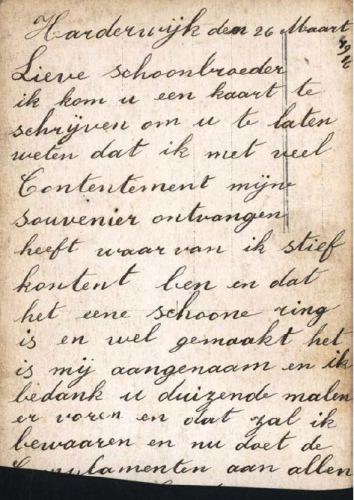 Harderwijk den 26 Maart
Lieve schoonbroeder
ik kom u een kaart te
schrijven om u te laten
weten dat ik met veel
Contentement mijne
souvenier ontvangen
heeft waar van ik stief
kontent ben en dat
het eene schoone ring
is en wel gemaakt het
is mij aangenaam en ik
bedank u duizende malen
er voren en dat zal ik
bewaaren en nu doet de
aan allen